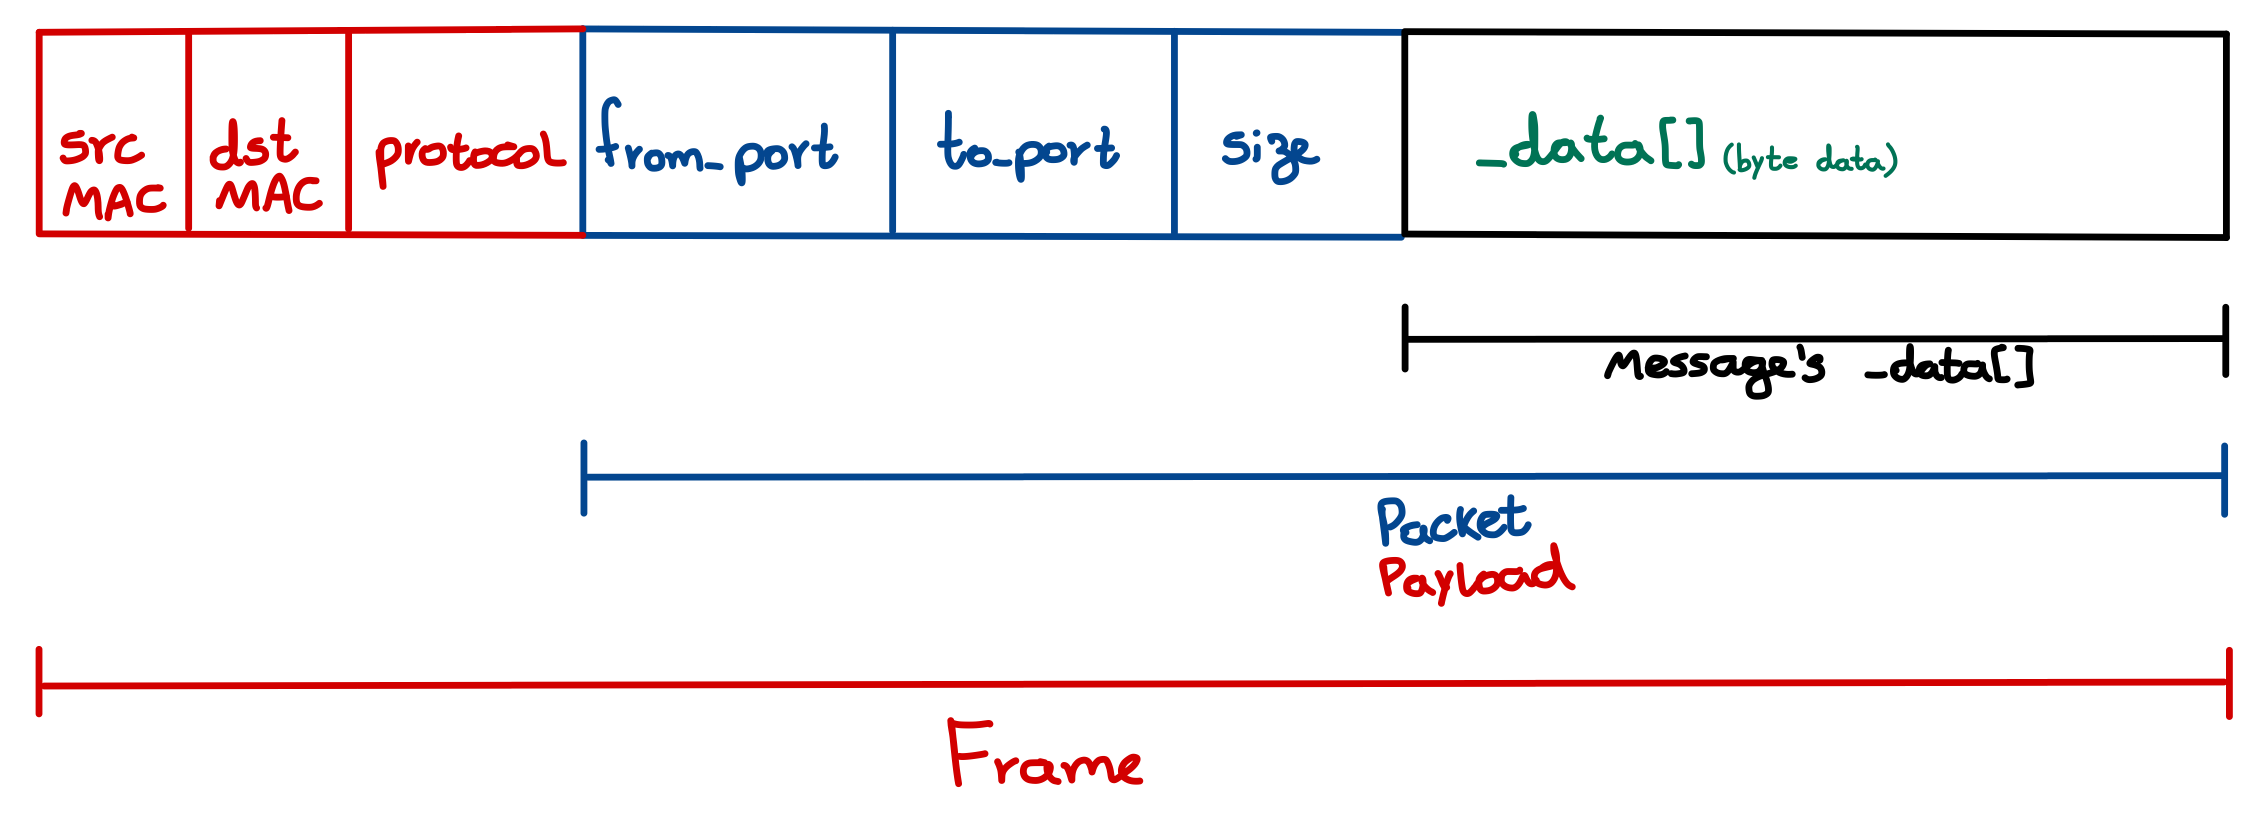 src
MAC
dst
MAC
protocol
from_port
to_port
size
_data[] (byte data)
Message's _data[]
Packet
Payload
Frame